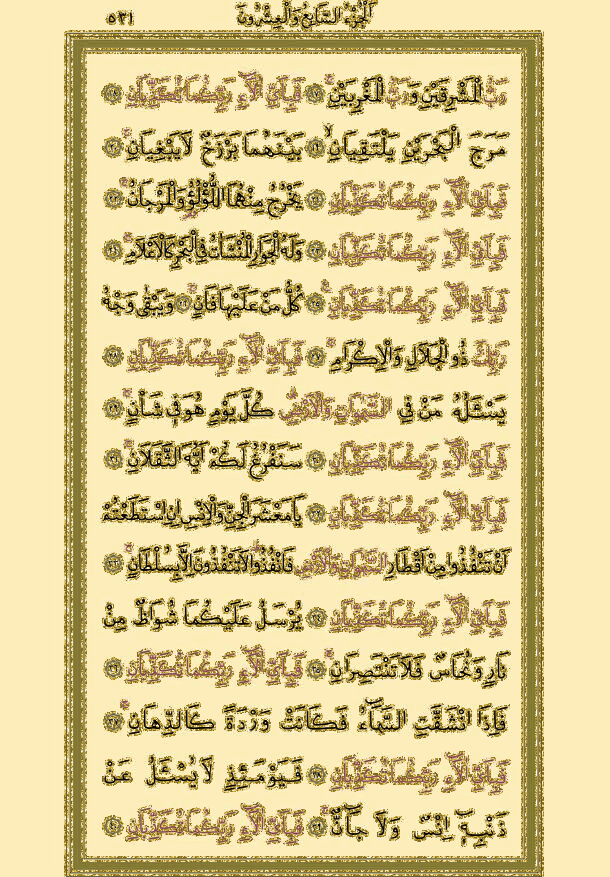 الجزء السابع والعشرون ٥٣١
رَبُّ الْمَشْرِقَيْنِ وَرَبُّ الْمَغْرِبَيْنِ ۝١٧ فَبِأَيِّ آلَاءِ رَبِّكُمَا تُكَذِّبَانِ ۝١٨
مَرَجَ الْبَحْرَيْنِ يَلْتَقِيَانِ ۝١٩ بَيْنَهُمَا بَرْزَخٌ لَا يَبْغِيَانِ ۝٢٠
فَبِأَيِّ آلَاءِ رَبِّكُمَا تُكَذِّبَانِ ۝٢١ يَخْرُجُ مِنْهُمَا اللُّؤْلُؤُ وَالْمَرْجَانُ ۝٢٢
فَبِأَيِّ آلَاءِ رَبِّكُمَا تُكَذِّبَانِ ۝٢٣ وَلَهُ الْجَوَارِ الْمُنْشَآتُ فِي الْبَحْرِ كَالْأَعْلَامِ ۝٢٤
فَبِأَيِّ آلَاءِ رَبِّكُمَا تُكَذِّبَانِ ۝٢٥ كُلُّ مَنْ عَلَيْهَا فَانٍ ۝٢٦ وَيَبْقَى وَجْهُ
رَبِّكَ ذُو الْجَلَالِ وَالْإِكْرَامِ ۝٢٧ فَبِأَيِّ آلَاءِ رَبِّكُمَا تُكَذِّبَانِ ۝٢٨
يَسْئَلُهُ مَنْ فِي السَّمٰوَاتِ وَالْأَرْضِ كُلَّ يَوْمٍ هُوَ فِي شَأْنٍ ۝٢٩
فَبِأَيِّ آلَاءِ رَبِّكُمَا تُكَذِّبَانِ ۝٣٠ سَنَفْرُغُ لَكُمْ أَيُّهَ الثَّقَلَانِ ۝٣١
فَبِأَيِّ آلَاءِ رَبِّكُمَا تُكَذِّبَانِ ۝٣٢ يَا مَعْشَرَ الْجِنِّ وَالْإِنْسِ إِنِ اسْتَطَعْتُمْ
أَنْ تَنْفُذُوا مِنْ أَقْطَارِ السَّمٰوَاتِ وَالْأَرْضِ فَانْفُذُوا لَا تَنْفُذُونَ إِلَّا بِسُلْطَانٍ ۝٣٣
فَبِأَيِّ آلَاءِ رَبِّكُمَا تُكَذِّبَانِ ۝٣٤ يُرْسَلُ عَلَيْكُمَا شُوَاظٌ مِنْ
نَارٍ وَنُحَاسٌ فَلَا تَنْتَصِرَانِ ۝٣٥ فَبِأَيِّ آلَاءِ رَبِّكُمَا تُكَذِّبَانِ ۝٣٦
فَإِذَا انْشَقَّتِ السَّمَاءُ فَكَانَتْ وَرْدَةً كَالدِّهَانِ ۝٣٧
فَبِأَيِّ آلَاءِ رَبِّكُمَا تُكَذِّبَانِ ۝٣٨ فَيَوْمَئِذٍ لَا يُسْئَلُ عَنْ
ذَنْبِهِ إِنْسٌ وَلَا جَانٌّ ۝٣٩ فَبِأَيِّ آلَاءِ رَبِّكُمَا تُكَذِّبَانِ ۝٤٠